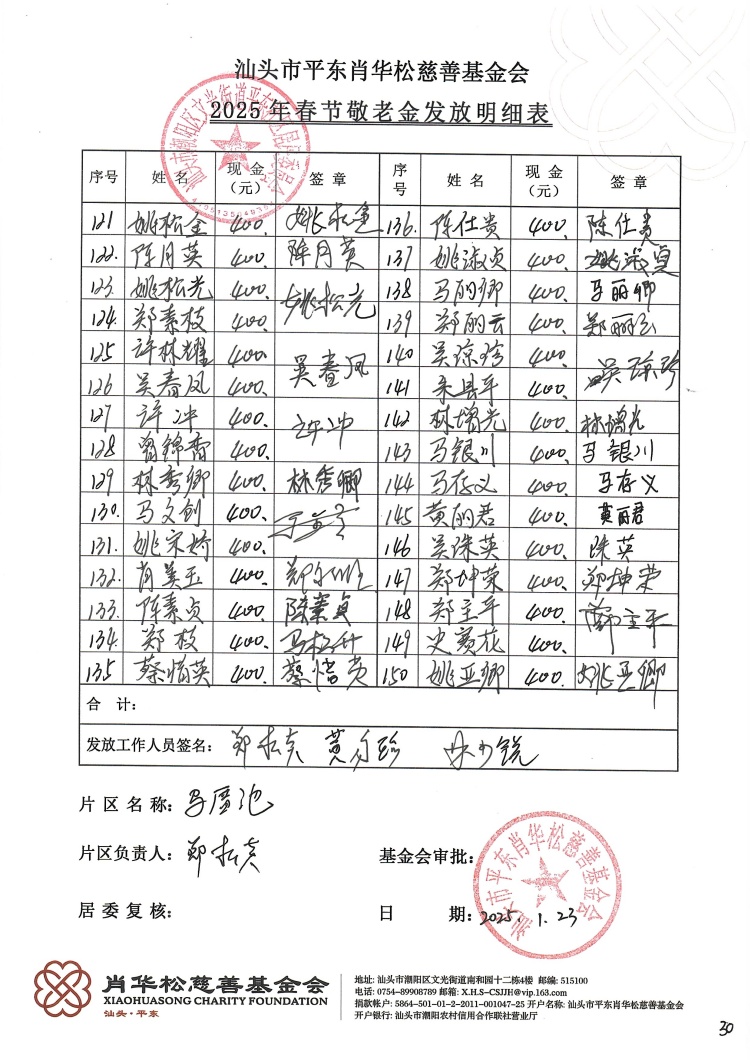 汕头市平东肖华松慈善基金会
2025年春节敬老金发放明细表
序号 姓名 现金（元） 签章 序号 姓名 现金（元） 签章
121 姚松金 400. 姚松金 136. 陈仕贵 400. 陈仕贵
122. 陈月英 400. 陈月英 137 姚淑贞 400. 姚淑贞
123. 姚松光 400. 姚松光 138 马丽卿 400. 马丽卿
124. 郑素枝 400. 139 郑丽云 400. 郑丽云
125 许林耀 400. 吴春凤 140 吴琼珍 400. 吴琼珍
126 吴春凤 400. 141 400.
127 许冲 400. 许冲 142 林增光 400. 林增光
128 曾锦香 400. 143 马银川 400. 马银川
129 林秀卿 400. 林秀卿 144 马存义 400. 马存义
130. 马文创 400. 145 黄丽君 400. 黄丽君
131. 姚宋娇 400. 146 吴珠英 400. 珠英
132. 肖美玉 400. 147 郑坤荣 400. 郑坤荣
133. 陈素贞 400. 陈素贞 148 郑主平 400. 郑主平
134. 郑枝 400. 149 史赛花 400.
135 蔡惜英 400. 蔡惜英 150 姚亚卿 400. 姚亚卿
合 计：
发放工作人员签名：
片区名称：
片区负责人：
基金会审批：
居委复核：
日 期：2025. 1. 23
汕头市平东肖华松慈善基金会
肖华松慈善基金会
XIAOHUASONG CHARITY FOUNDATION
汕头·平东
地址: 汕头市潮阳区文光街道南和园十二栋4楼 邮编: 515100
电话: 0754-89908789 邮箱: X.H.S-CSJJH@vip.163.com
捐款帐户: 5864-501-01-2-2011-001047-25 开户名称: 汕头市平东肖华松慈善基金会
开户银行: 汕头潮阳农村信用合作联社营业厅
30